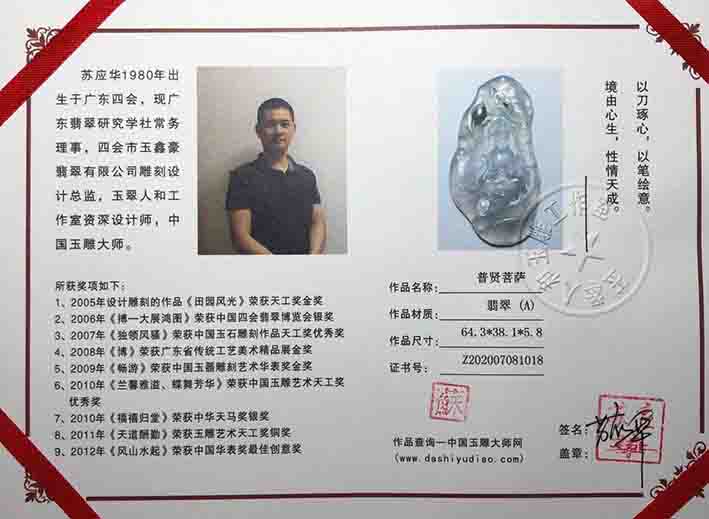 苏应华1980年出
生于广东四会，现广
东翡翠研究学社常务
理事，四会市玉鑫豪
翡翠有限公司雕刻设
计总监，玉翠人和工
作室资深设计师，中
国玉雕大师。
以刀琢心，以笔绘意。
境由心生，性情天成。
所获奖项如下：
1、2005年设计雕刻的作品《田园风光》荣获天工奖金奖
2、2006年《搏一大展鸿图》荣获中国四会翡翠博览会银奖
3、2007年《独领风骚》荣获中国玉石雕刻作品天工奖优秀奖
4、2008年《博》荣获广东省传统工艺美术精品展金奖
5、2009年《畅游》荣获中国玉器雕刻艺术华表奖金奖
6、2010年《兰馨雅溢、蝶舞芳华》荣获中国玉雕艺术天工奖
优秀奖
7、2010年《福禧归堂》荣获中华天马奖银奖
8、2011年《天道酬勤》荣获玉雕艺术天工奖铜奖
9、2012年《风山水起》荣获中国华表奖最佳创意奖
作品名称： 普贤菩萨
作品材质： 翡翠 (A)
作品尺寸： 64.3*38.1*5.8
证书号： Z202007081018
作品查询—中国玉雕大师网
(www.dashiyudiao.com)
签名：
盖章：